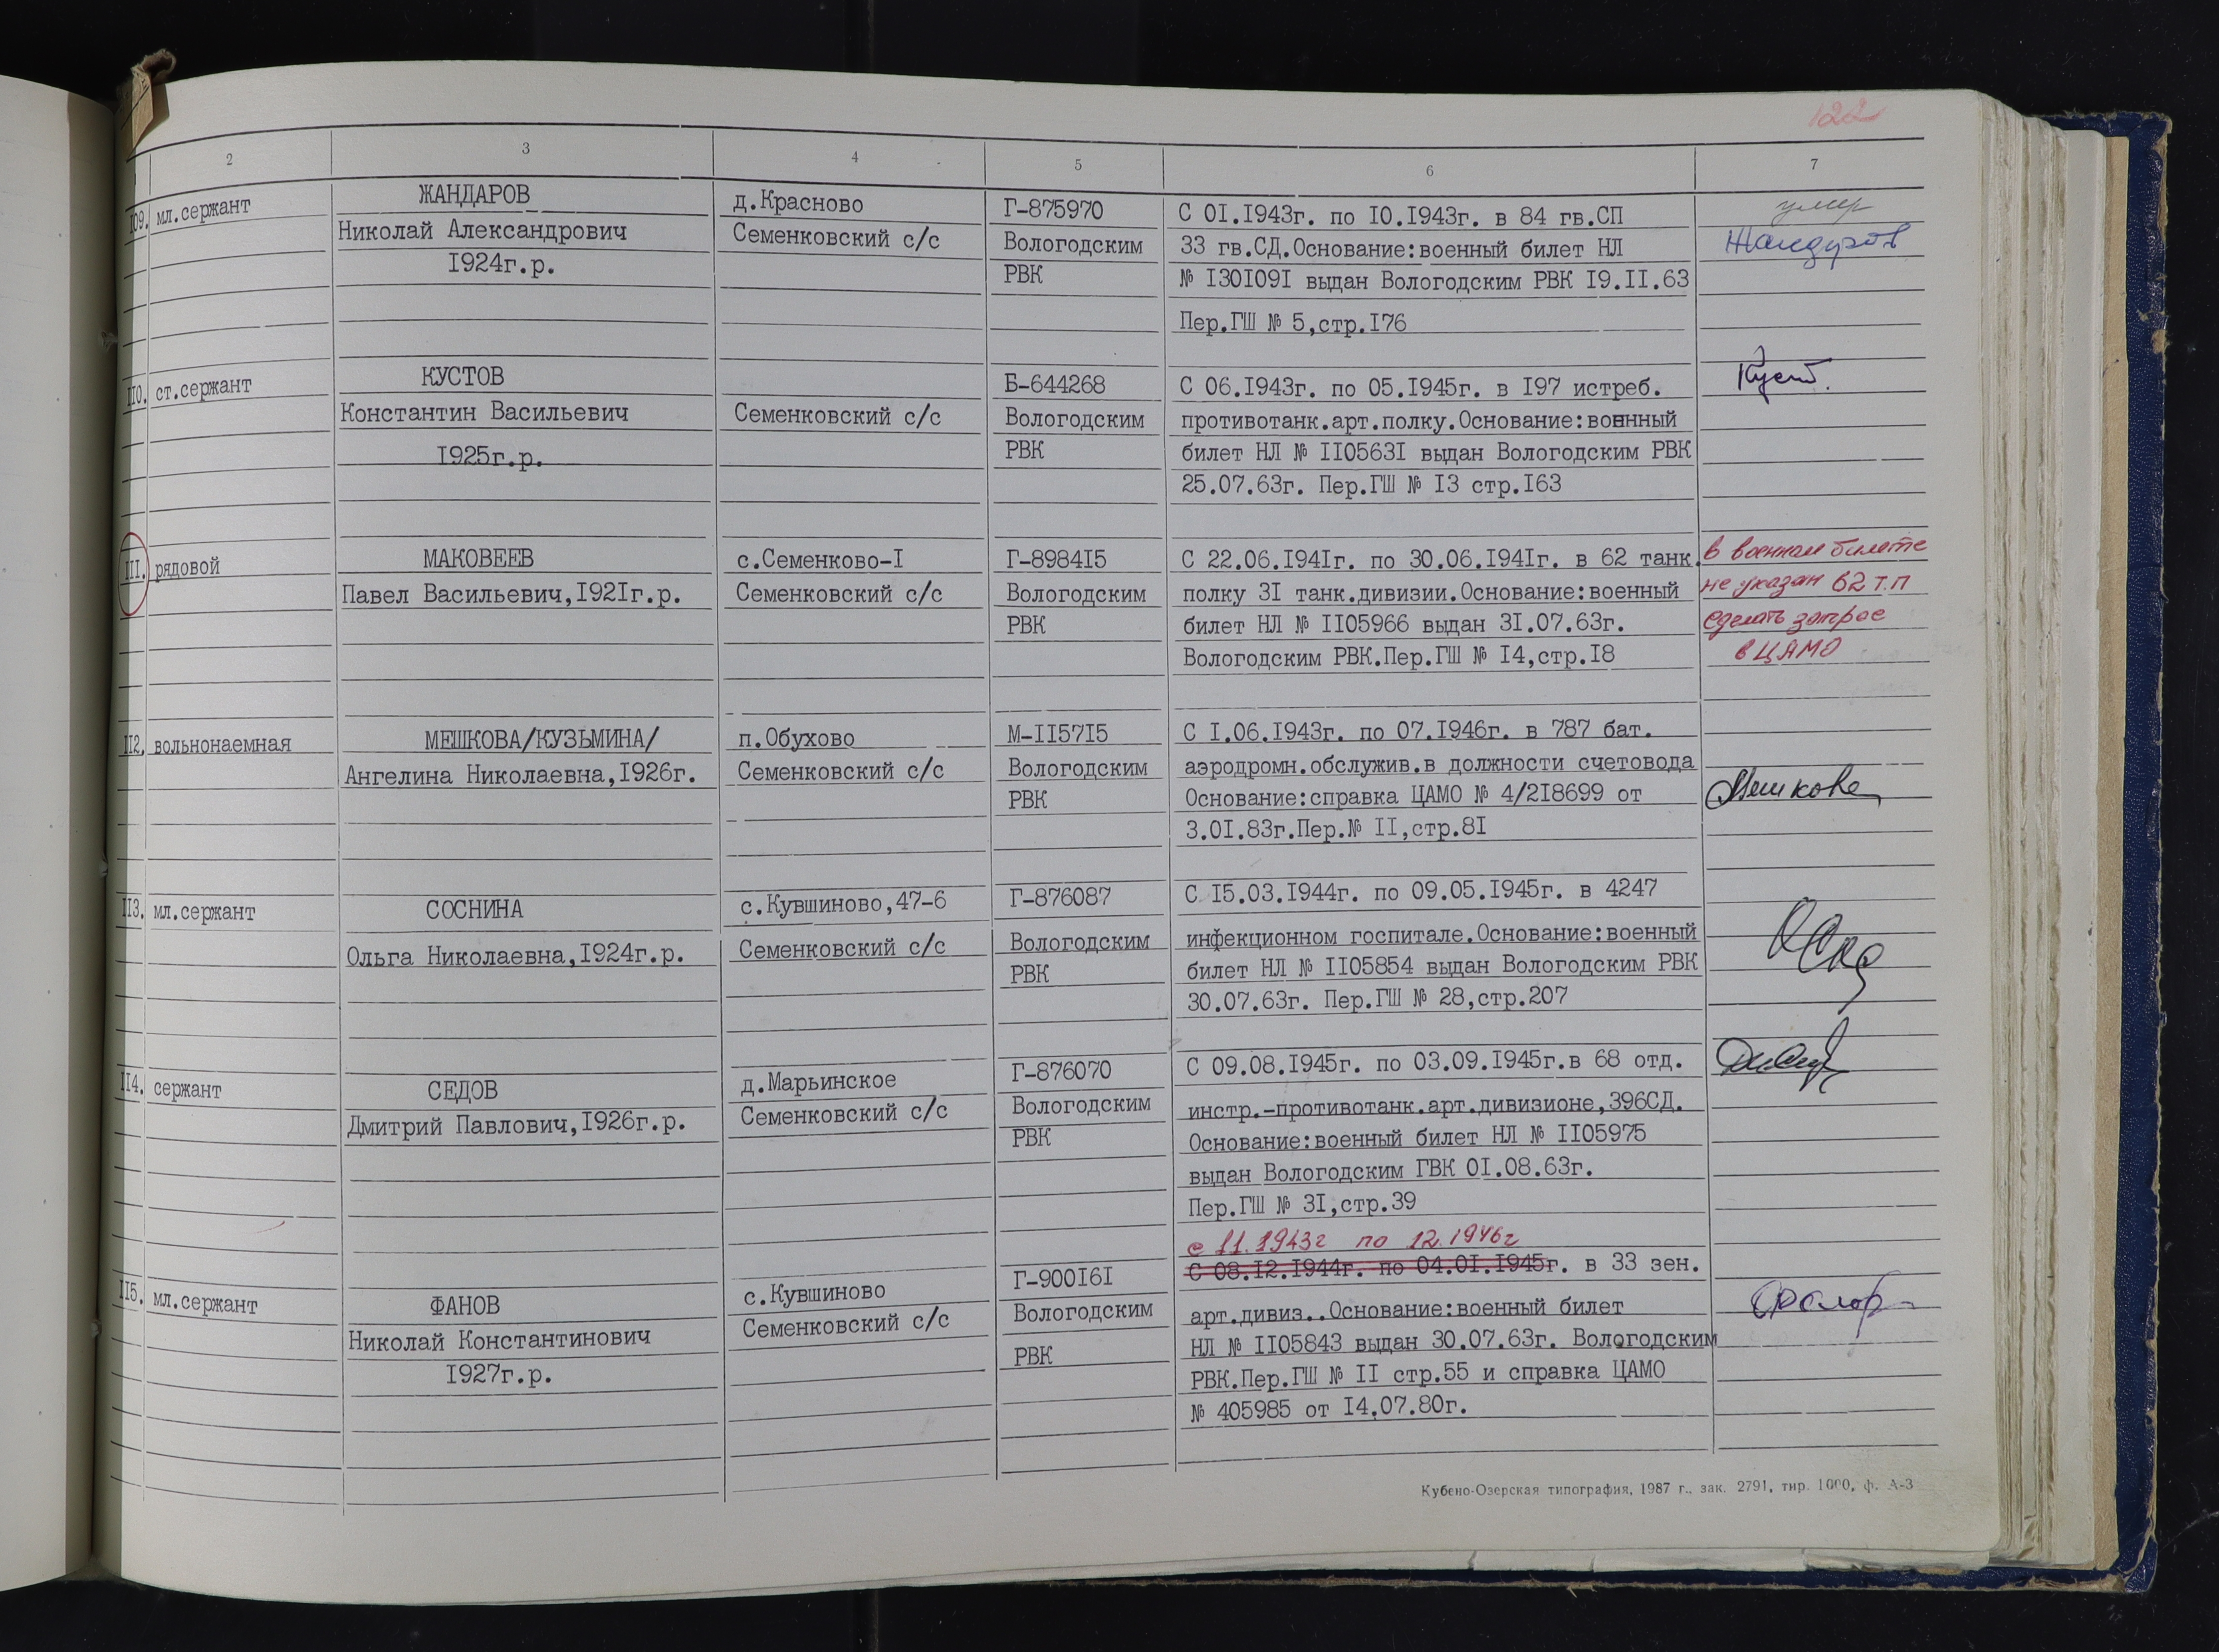 122
2 3 4 5 6 7
109. мл.сержант
ЖАНДАРОВ
Николай Александрович
I924г.р.
д.Красново
Семенковский с/с
Г-875970
Вологодским
РВК
С 0I.I943г. по I0.I943г. в 84 гв.СП
33 гв.СД.Основание:военный билет НЛ
№ I30I09I выдан Вологодским РВК I9.II.63
Пер.ГШ № 5,стр.I76
умер
Жандаров
II0. ст.сержант
КУСТОВ
Константин Васильевич
I925г.р.
Семенковский с/с
Б-644268
Вологодским
РВК
С 06.I943г. по 05.I945г. в I97 истреб.
противотанк.арт.полку.Основание:военный
билет НЛ № II0563I выдан Вологодским РВК
25.07.63г. Пер.ГШ № I3 стр.I63
Куст.
III. рядовой
МАКОВЕЕВ
Павел Васильевич,I92Iг.р.
с.Семенково-I
Семенковский с/с
Г-8984I5
Вологодским
РВК
С 22.06.I94Iг. по 30.06.I94Iг. в 62 танк.
полку 3I танк.дивизии.Основание:военный
билет НЛ № II05966 выдан 3I.07.63г.
Вологодским РВК.Пер.ГШ № I4,стр.I8
в военном билете
не указан 62 т.п
сделать запрос
в ЦАМО
II2. вольнонаемная
МЕШКОВА/КУЗЬМИНА/
Ангелина Николаевна,I926г.
п.Обухово
Семенковский с/с
М-II57I5
Вологодским
РВК
С I.06.I943г. по 07.I946г. в 787 бат.
аэродромн.обслужив.в должности счетовода
Основание:справка ЦАМО № 4/2I8699 от
3.0I.83г.Пер.№ II,стр.8I
Мешкова
II3. мл.сержант
СОСНИНА
Ольга Николаевна,I924г.р.
с.Кувшиново,47-6
Семенковский с/с
Г-876087
Вологодским
РВК
С I5.03.I944г. по 09.05.I945г. в 4247
инфекционном госпитале.Основание:военный
билет НЛ № II05854 выдан Вологодским РВК
30.07.63г. Пер.ГШ № 28,стр.207
II4. сержант
СЕДОВ
Дмитрий Павлович,I926г.р.
д.Марьинское
Семенковский с/с
Г-876070
Вологодским
РВК
С 09.08.I945г. по 03.09.I945г.в 68 отд.
инстр.-противотанк.арт.дивизионе,396СД.
Основание:военный билет НЛ № II05975
выдан Вологодским ГВК 0I.08.63г.
Пер.ГШ № 3I,стр.39
II5. мл.сержант
ФАНОВ
Николай Константинович
I927г.р.
с.Кувшиново
Семенковский с/с
Г-900I6I
Вологодским
РВК
с 11.1943г по 12.1946г
С 08.I2.I944г. по 04.0I.I945г. в 33 зен.
арт.дивиз..Основание:военный билет
НЛ № II05843 выдан 30.07.63г. Вологодским
РВК.Пер.ГШ № II стр.55 и справка ЦАМО
№ 405985 от I4.07.80г.
Кубено-Озерская типография, 1987 г., зак. 2791, тир. 1000, ф. А-3